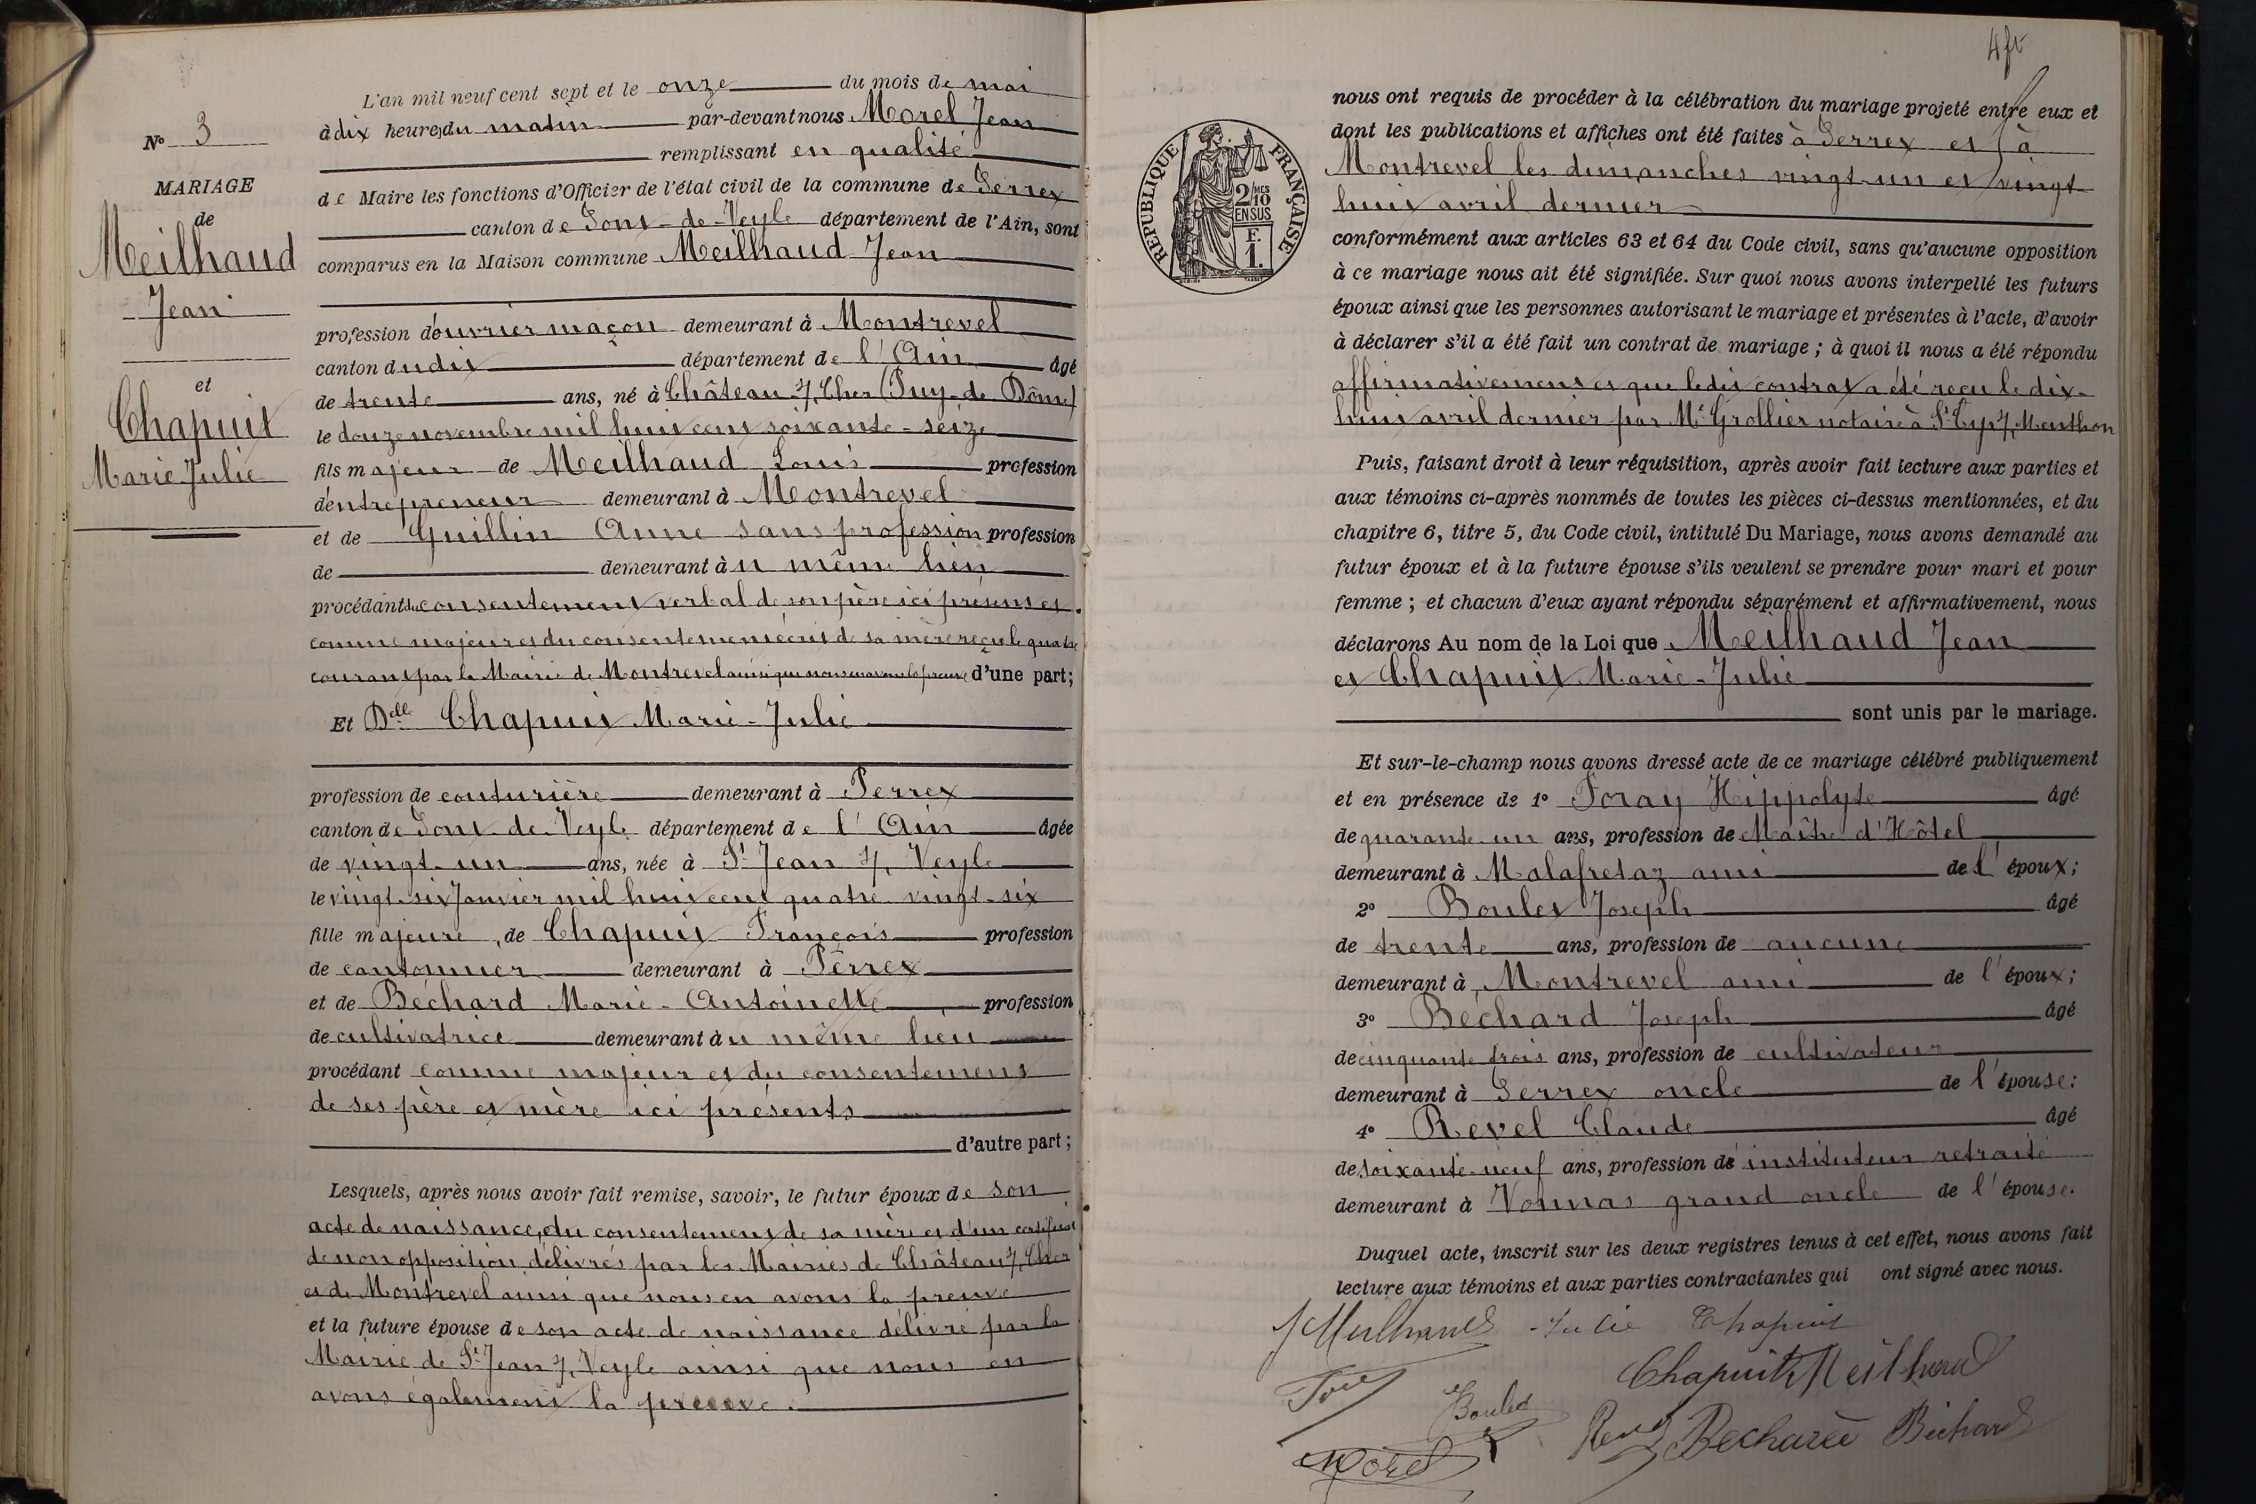 L'an mil neuf cent sept et le onze du mois de mai
à dix heures du matin par-devant nous Morel Jean
remplissant en qualité
de Maire les fonctions d'Officier de l'état civil de la commune de Perrex
canton de Pont-de-Veyle département de l'Ain, sont
comparus en la Maison commune Meilhaud Jean
profession d'ouvrier maçon demeurant à Montrevel
canton dudit département de l'Ain âgé
de trente ans, né à Château s/ Cher (Puy-de Dôme)
le douze novembre mil huit cent soixante-seize
fils majeur de Meilhaud Louis profession
d'entrepreneur demeurant à Montrevel
et de Guillin Anne sans profession profession
de demeurant à u même lieu
procédant du consentement verbal de son père ici présent et
comme majeur et du consentement écrit de sa mère reçu le quatre
courant par la Mairie de Montrevel ainsi que nous en avons la preuve d'une part;
Et Delle Chapuit Marie-Julie
profession de couturière demeurant à Perrex
canton de Pont-de-Veyle département de l'Ain âgée
de vingt-un ans, née à St Jean s/ Veyle
le vingt-six Janvier mil huit cent quatre vingt-six
fille majeure, de Chapuit François profession
de cantonnier demeurant à Perrex
et de Béchard Marie-Antoinette profession
de cultivatrice demeurant à u même lieu
procédant comme majeur et du consentement
de ses père et mère ici présents
d'autre part;
Lesquels, après nous avoir fait remise, savoir, le futur époux de son
acte de naissance, du consentement de sa mère et d'un certificat
de non opposition délivrés par les Mairies de Château s/ Cher
et de Montrevel ainsi que nous en avons la preuve
et la future épouse de son acte de naissance délivré par la
Mairie de St Jean s/ Veyle ainsi que nous en
avons également la preuve.
No 3
MARIAGE
de
Meilhaud
Jean
et
Chapuit
Marie Julie
4
RÉPUBLIQUE FRANÇAISE
2/10 MES
EN SUS
F.
1.
nous ont requis de procéder à la célébration du mariage projeté entre eux et
dont les publications et affiches ont été faites à Perrex et à
Montrevel les dimanches vingt-un et vingt
huit avril dernier
conformément aux articles 63 et 64 du Code civil, sans qu'aucune opposition
à ce mariage nous ait été signifiée. Sur quoi nous avons interpellé les futurs
époux ainsi que les personnes autorisant le mariage et présentes à l'acte, d'avoir
à déclarer s'il a été fait un contrat de mariage; à quoi il nous a été répondu
affirmativement et que ledit contrat a été reçu le dix-
huit avril dernier par Me Grollier notaire à St Cyr s/ Menthon
Puis, faisant droit à leur réquisition, après avoir fait lecture aux parties et
aux témoins ci-après nommés de toutes les pièces ci-dessus mentionnées, et du
chapitre 6, titre 5, du Code civil, intitulé Du Mariage, nous avons demandé au
futur époux et à la future épouse s'ils veulent se prendre pour mari et pour
femme; et chacun d'eux ayant répondu séparément et affirmativement, nous
déclarons Au nom de la Loi que Meilhaud Jean
et Chapuit Marie-Julie
sont unis par le mariage.
Et sur-le-champ nous avons dressé acte de ce mariage célébré publiquement
et en présence de 1o Foray Hippolyte âgé
de quarante-un ans, profession de Maître d'Hôtel
demeurant à Malafretaz ami de l'époux;
2o Boulet Joseph âgé
de trente ans, profession de aucune
demeurant à Montrevel ami de l'époux;
3o Bechard Joseph âgé
de cinquante trois ans, profession de cultivateur
demeurant à Perrex oncle de l'épouse:
4o Revel Claude âgé
de soixante-neuf ans, profession de instituteur retraité
demeurant à Vonnas grand oncle de l'épouse.
Duquel acte, inscrit sur les deux registres tenus à cet effet, nous avons fait
lecture aux témoins et aux parties contractantes qui ont signé avec nous.
J Meilhaud Julie Chapuit
Chapuit Meilhaud
Boulet
Revel Bechard Béchard
Morel